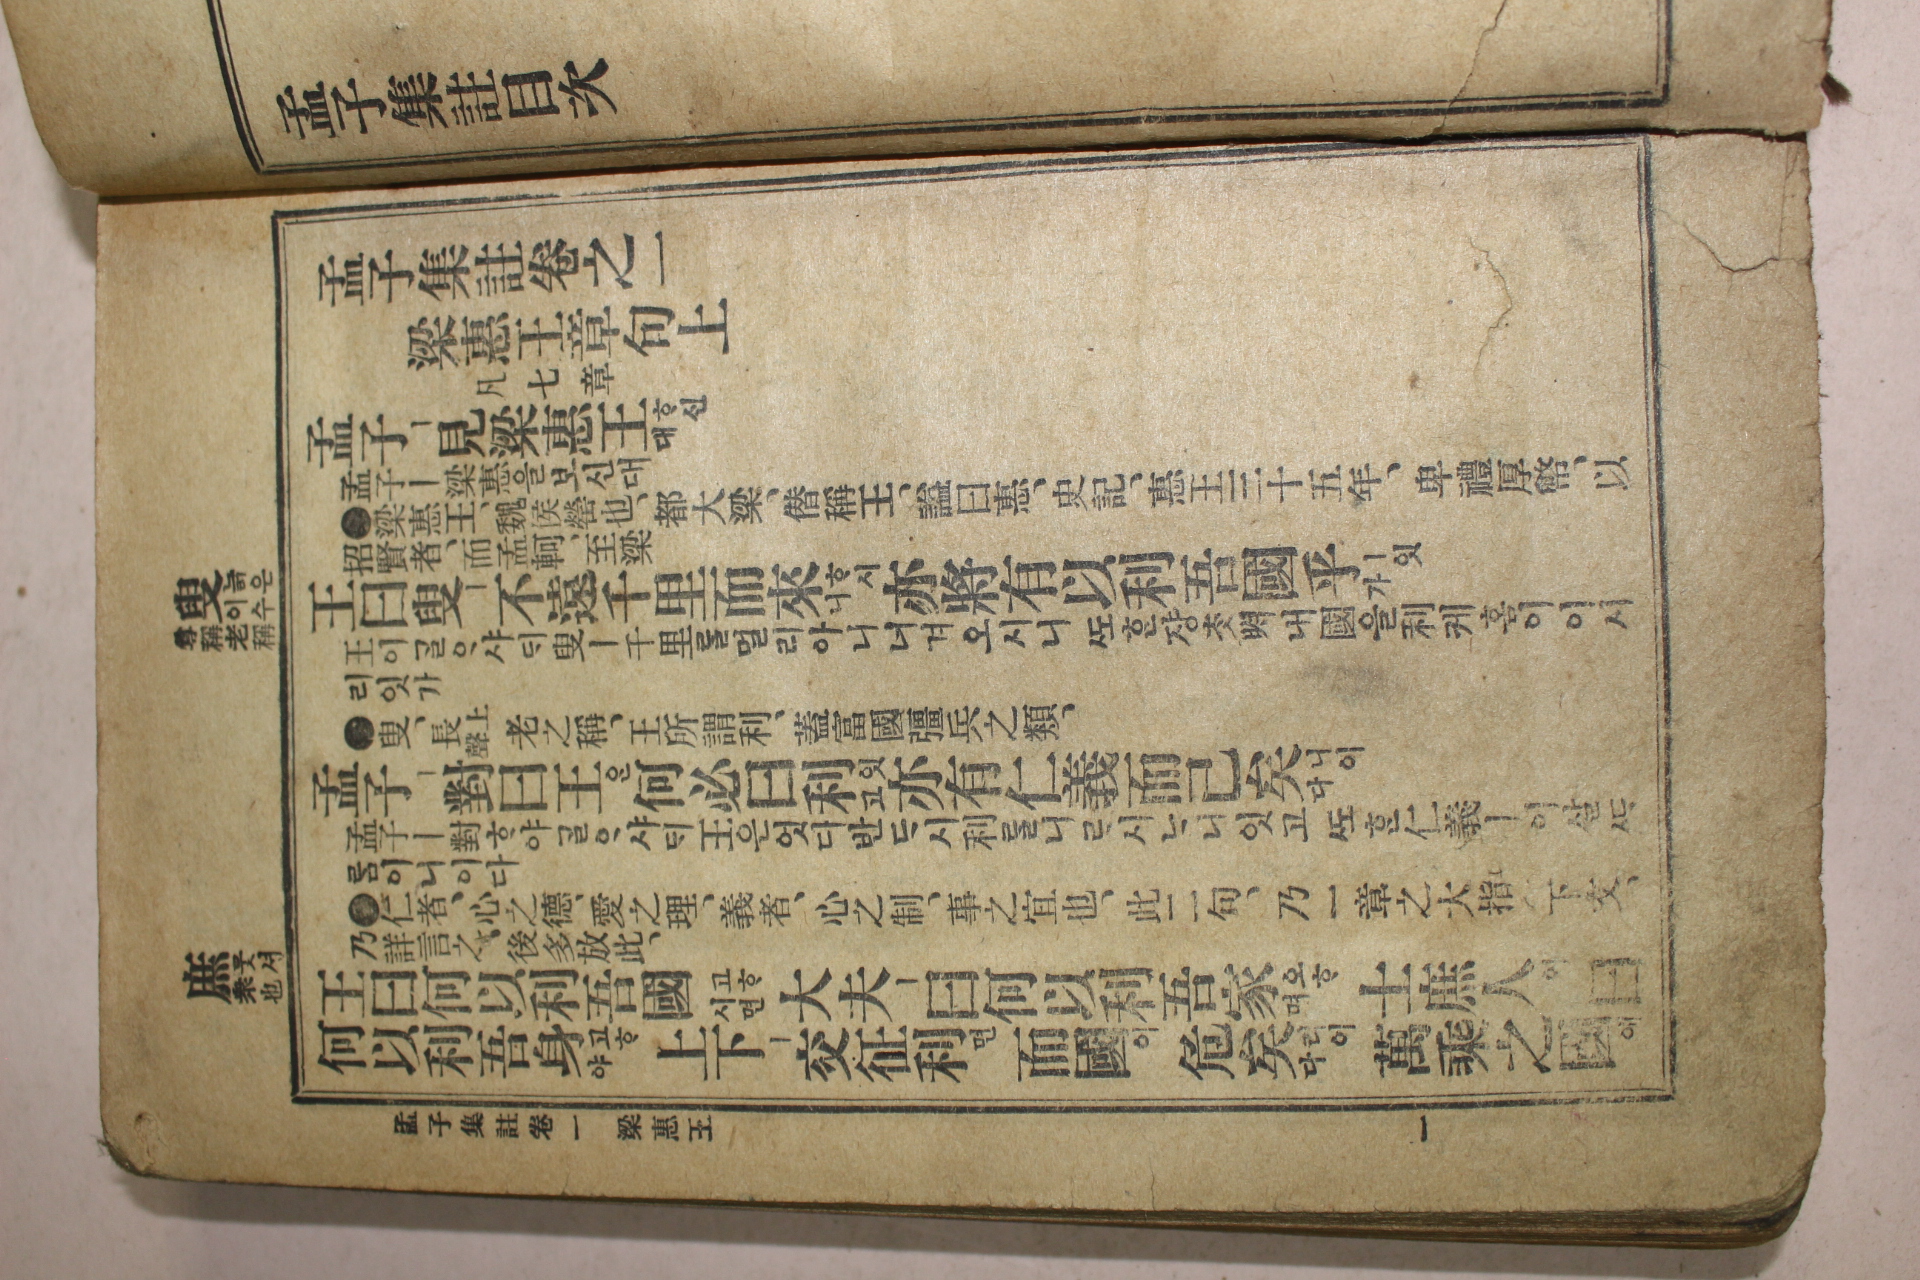 孟子集註目次
孟子集註卷之一
梁惠王章句上
凡七章
孟子ㅣ見梁惠王ᄒᆞ신대
孟子ㅣ梁惠을보신대
●梁惠王、魏侯罃也、都大梁、僭稱王、謚曰惠、史記、惠王三十五年、卑禮厚幣、以
招賢者、而孟軻、至梁
王曰叟ㅣ不遠千里而來ᄒᆞ시니亦將有以利吾國乎ㅣ잇가
王이ᄀᆞᆯᄋᆞ샤ᄃᆡ叟ㅣ千里를멀리아니녀겨오시니ᄯᅩᄒᆞᆫ쟝ᄎᆞᆺᄡᅥ내國을利케홈이이시
리잇가
●叟、長上聲老之稱、王所謂利、蓋富國彊兵之類、
孟子ㅣ對曰王은何必曰利잇고亦有仁義而已矣니이다
孟子ㅣ對ᄒᆞ야ᄀᆞᆯᄋᆞ샤ᄃᆡ王은엇디반ᄃᆞ시利를니ᄅᆞ시ᄂᆞ니잇고ᄯᅩᄒᆞᆫ仁義ㅣ이실ᄯᆞ
ᄅᆞᆷ이니이다
●仁者、心之德、愛之理、義者、心之制、事之宜也、此二句、乃一章之大指、下文、
乃詳言之、後多放此、
王曰何以利吾國고ᄒᆞ시면大夫ㅣ曰何以利吾家오ᄒᆞ며士庶人이曰
何以利吾身고ᄒᆞ야上下ㅣ交征利면而國이危矣리이다萬乘之國에
叟
尊稱老稱
庶
衆也
孟子集註卷一 梁惠王
一